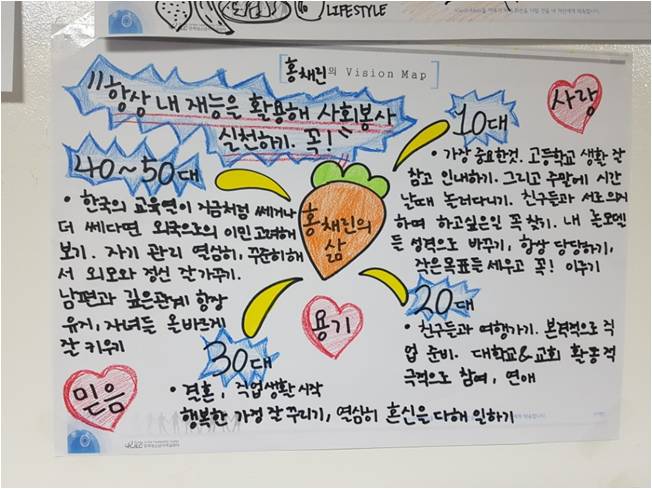 LIFESTYLE
홍채린의 Vision Map
"항상 내 재능을 활용해 사회봉사
실천하기. 꼭!"
사랑
10대
• 가장 중요한것. 고등학교 생활 잘
참고 인내하기. 그리고 주말에 시간
날때 놀러다니기. 친구들과 서로 의지
하며 하고싶은일 꼭 찾기. 내 롤모델
들 성격으로 바꾸기, 항상 당당하기,
작은목표들 세우고 꼭! 이루기
20대
• 친구들과 여행가기. 본격적으로 직
업 준비. 대학교&교회 활동 적
극적으로 참여, 연애
홍채린의
삶
용기
30대
• 결혼, 직업생활 시작
행복한 가정 잘 꾸리기, 열심히 혼신을 다해 일하기
40~50대
• 한국의 교육열이 지금처럼 쎄거나
더 쎄다면 외국으로의 이민 고려해
보기. 자기 관리 열심히, 꾸준히해
서 외모와 정신 잘가꾸기.
남편과 깊은관계 항상
유지, 자녀들 올바르게
잘 키우기
믿음